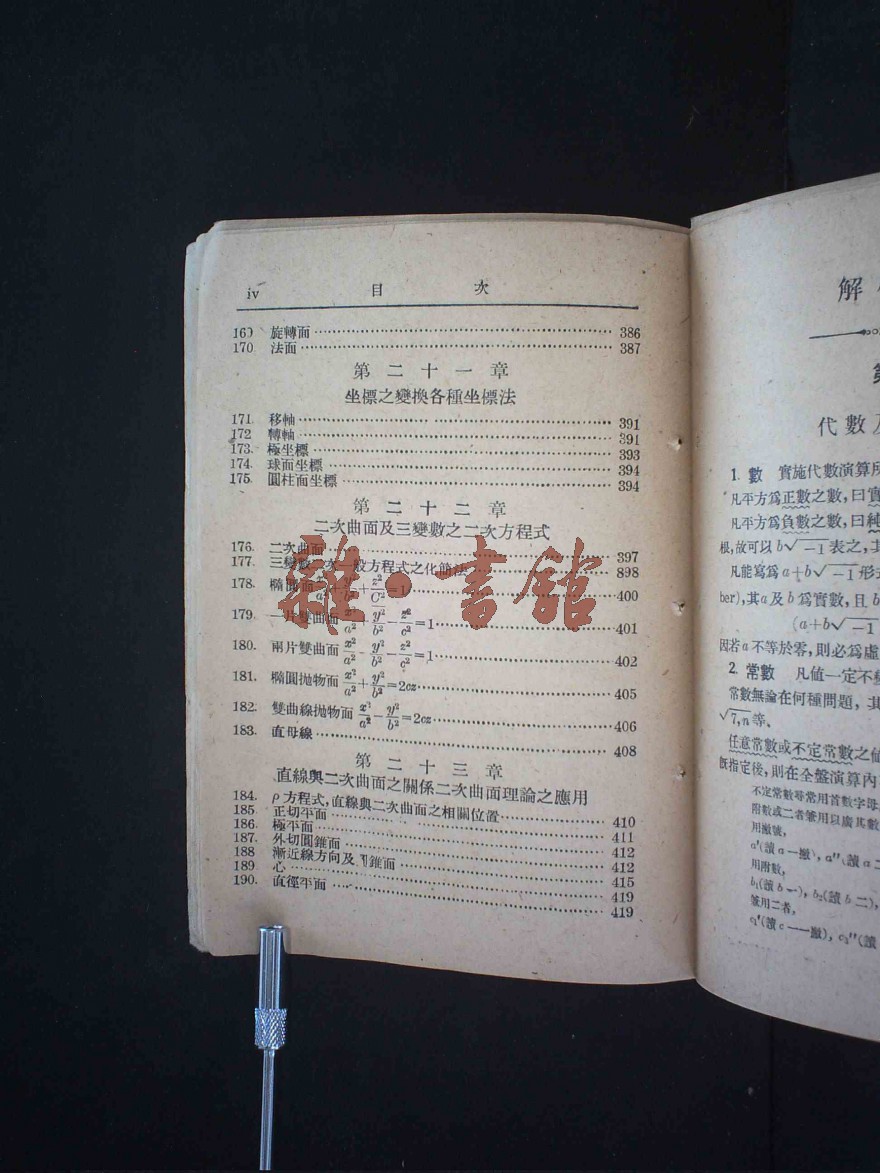 iv 目 次
169 旋轉面 386
170. 法面 387
第 二 十 一 章
坐標之變換各種坐標法
171. 移軸 391
172 轉軸 391
173. 極坐標 393
174. 球面坐標 394
175. 圓柱面坐標 394
第 二 十 二 章
二次曲面及三變數之二次方程式
176. 二次曲面 397
177. 三變數二次一般方程式之化簡法 398
178. 橢圓面 x²/a²+y²/b²+z²/C²=1 400
179. 一片雙曲面 x²/a²+y²/b²-z²/c²=1 401
180. 兩片雙曲面 x²/a²-y²/b²-z²/c²=1 402
181. 橢圓拋物面 x²/a²+y²/b²=2cz 405
182. 雙曲線拋物面 x²/a²-y²/b²=2cz 406
183. 直母線 408
第 二 十 三 章
直線與二次曲面之關係二次曲面理論之應用
184. ρ方程式,直線與二次曲面之相關位置 410
185. 正切平面 411
186. 極平面 412
187. 外切圓錐面 412
188 漸近線方向及 錐面 415
189. 心 419
190. 直徑平面 419
雜·書館
解
第
代數及
1. 數 實施代數演算所
凡平方爲正數之數,曰實
凡平方爲負數之數,曰純
根,故可以 b√-1 表之,其
凡能寫爲 a+b√-1 形式
ber),其 a 及 b 爲實數,且 b
(a+b√-1
因若 a 不等於零,則必爲虛
2. 常數 凡值一定不變
常數無論在何種問題,其
√7,π 等、
任意常數或不定常數之值
旣指定後,則在全盤演算內
不定常數尋常用首數字母
附數或二者兼用以廣其數
用撇號,
a'(讀 a 一撇), a''(讀 a 二
用附數,
b₁(讀 b 一), b₂(讀 b 二),
兼用二者,
c₁'(讀 c 一一撇), c₁''(讀